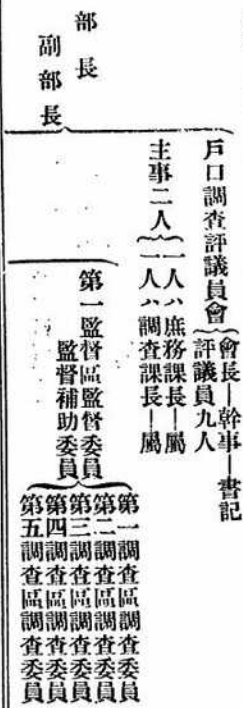 部長
副部長
戶口調查評議員會
會長―幹事―書記
評議員九人
主事二人
一人ハ庶務課長―屬
一人ハ調查課長―屬
第一監督區監督委員
監督補助委員
第一調查區調查委員
第二調查區調查委員
第三調查區調查委員
第四調查區調查委員
第五調查區調查委員